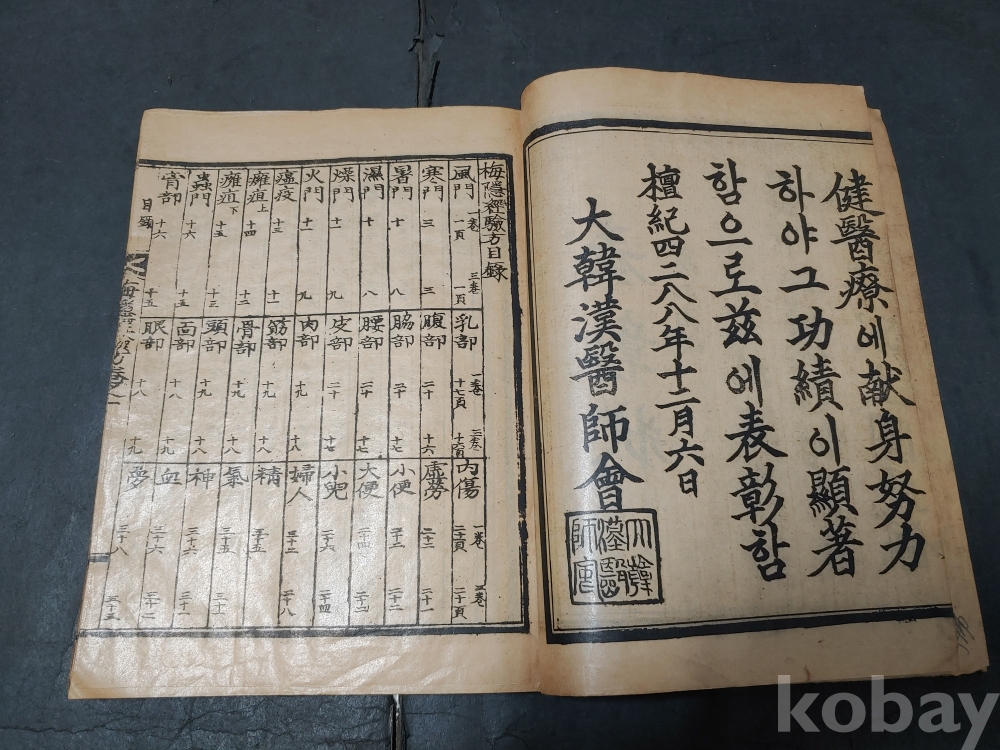 健醫療에献身努力
하야그功績이顯著
함으로玆에表彰함
檀紀四二八八年十二月六日
大韓漢醫師會
大韓
漢醫
師會
梅隱經驗方目錄
風門 一卷 一頁 三卷 一頁
寒門 三 三
暑門 十 八
濕門 十 八
燥門 十一 九
火門 十一 九
瘟疫 十三 十一
癰疽上 十四 十三
癰疽下 十五 十三
蟲門 十六 十五
背部 十六 十五
乳部 一卷 十七頁 三卷 十六頁
腹部 二十 十六
脇部 二十 十七
腰部 二十 十七
皮部 二十 十七
肉部 十九 十八
筋部 十九 十八
骨部 十九 十八
頭部 十九 十八
面部 十八 十九
眼部 十八 十九
內傷 一卷 二十頁 三卷 二十頁
虛勞 二十二 二十一
小便 二十三 二十二
大便 二十四 二十二
小兒 二十六 二十四
婦人 三十二 二十八
精 三十五
氣 三十五 三十一
神 三十六 三十一
血 三十六 三十二
夢 三十八 三十三
目錄
kobay